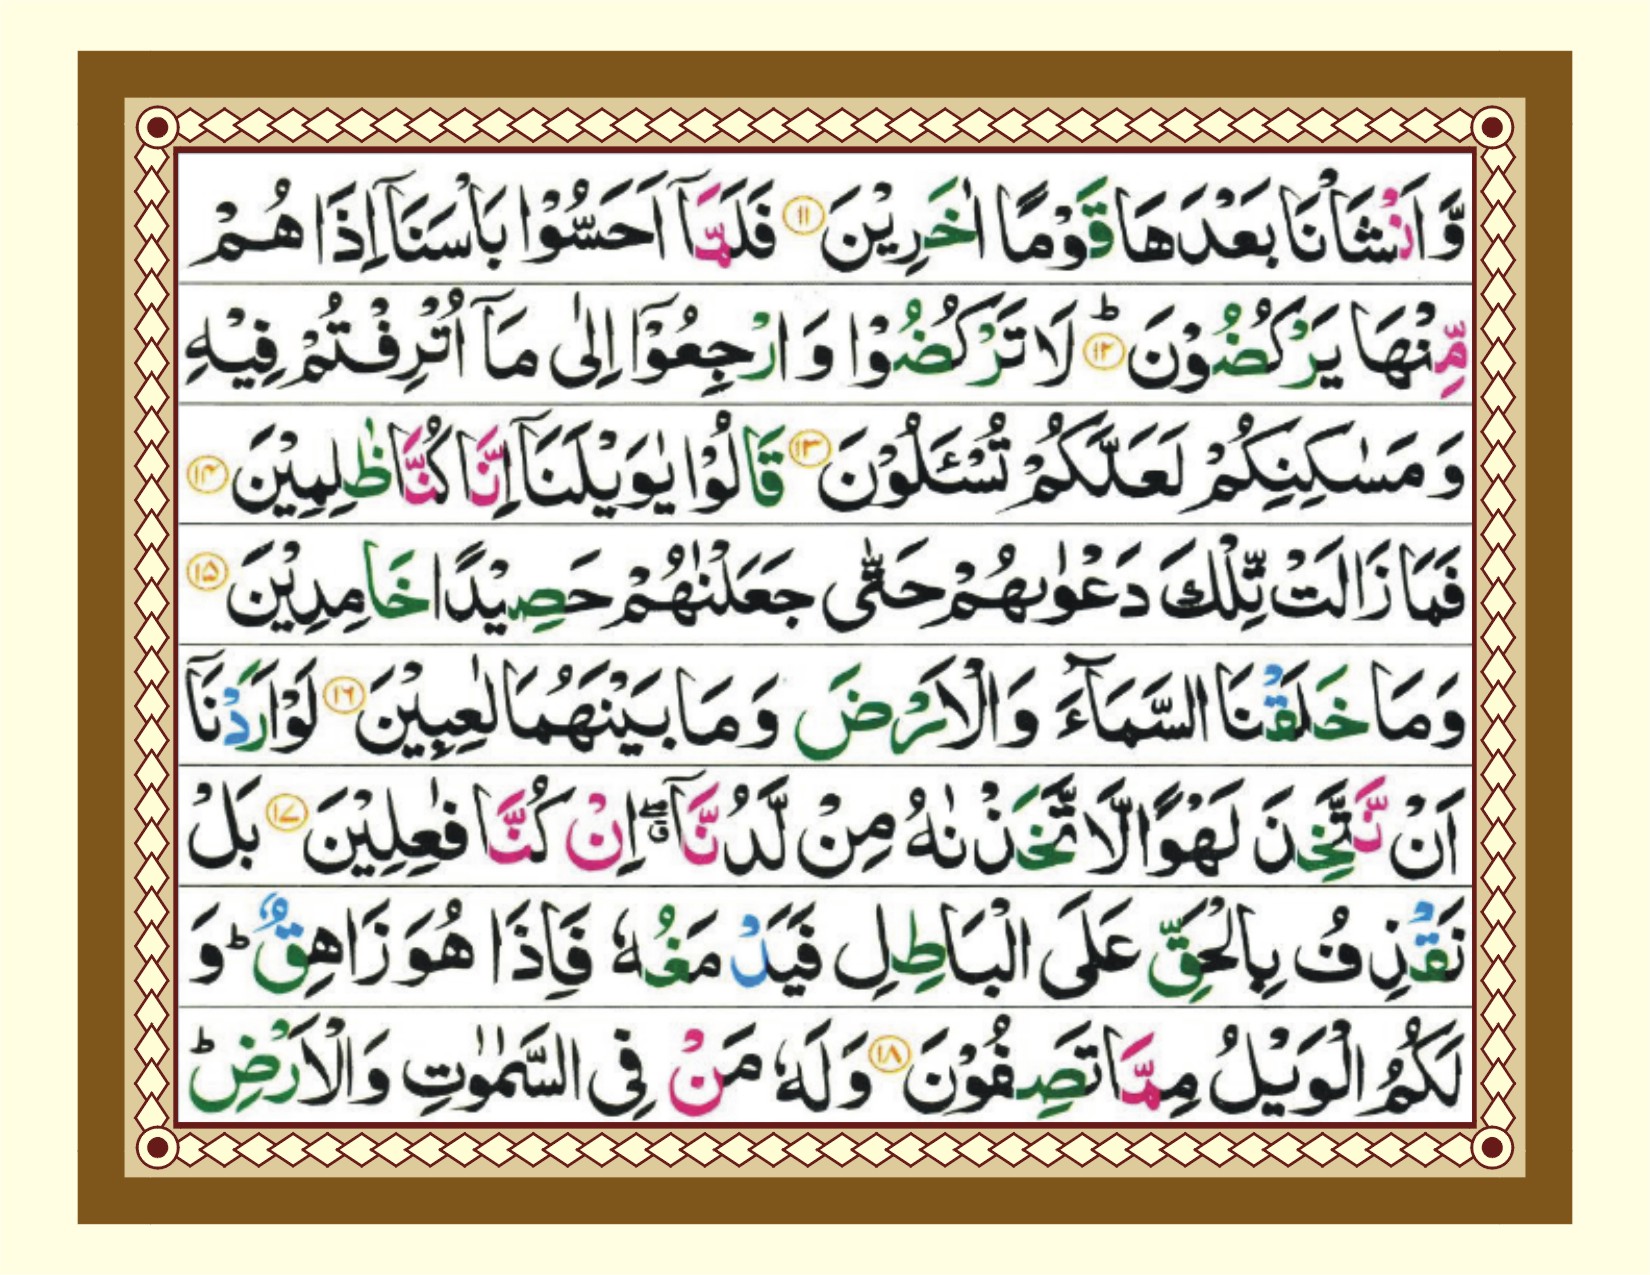 وَّ اَنْشَاْنَا بَعْدَهَا قَوْمًا اٰخَرِيْنَ ۝۱۱ فَلَمَّاۤ اَحَسُّوْا بَاْسَنَاۤ اِذَا هُمْ
مِّنْهَا يَرْكُضُوْنَ ؕ۝۱۲ لَا تَرْكُضُوْا وَ ارْجِعُوْۤا اِلٰى مَاۤ اُتْرِفْتُمْ فِيْهِ
وَ مَسٰكِنِكُمْ لَعَلَّكُمْ تُسْـَٔلُوْنَ ۝۱۳ قَالُوْا يٰوَيْلَنَاۤ اِنَّا كُنَّا ظٰلِمِيْنَ ۝۱۴
فَمَا زَالَتْ تِّلْكَ دَعْوٰىهُمْ حَتّٰى جَعَلْنٰهُمْ حَصِيْدًا خَامِدِيْنَ ۝۱۵
وَ مَا خَلَقْنَا السَّمَآءَ وَ الْاَرْضَ وَ مَا بَيْنَهُمَا لٰعِبِيْنَ ۝۱۶ لَوْ اَرَدْنَاۤ
اَنْ نَّتَّخِذَ لَهْوًا لَّاتَّخَذْنٰهُ مِنْ لَّدُنَّاۤ ۖۗ اِنْ كُنَّا فٰعِلِيْنَ ۝۱۷ بَلْ
نَقْذِفُ بِالْحَقِّ عَلَى الْبَاطِلِ فَيَدْمَغُهٗ فَاِذَا هُوَ زَاهِقٌ ؕ وَ
لَكُمُ الْوَيْلُ مِمَّا تَصِفُوْنَ ۝۱۸ وَ لَهٗ مَنْ فِى السَّمٰوٰتِ وَ الْاَرْضِ ؕ